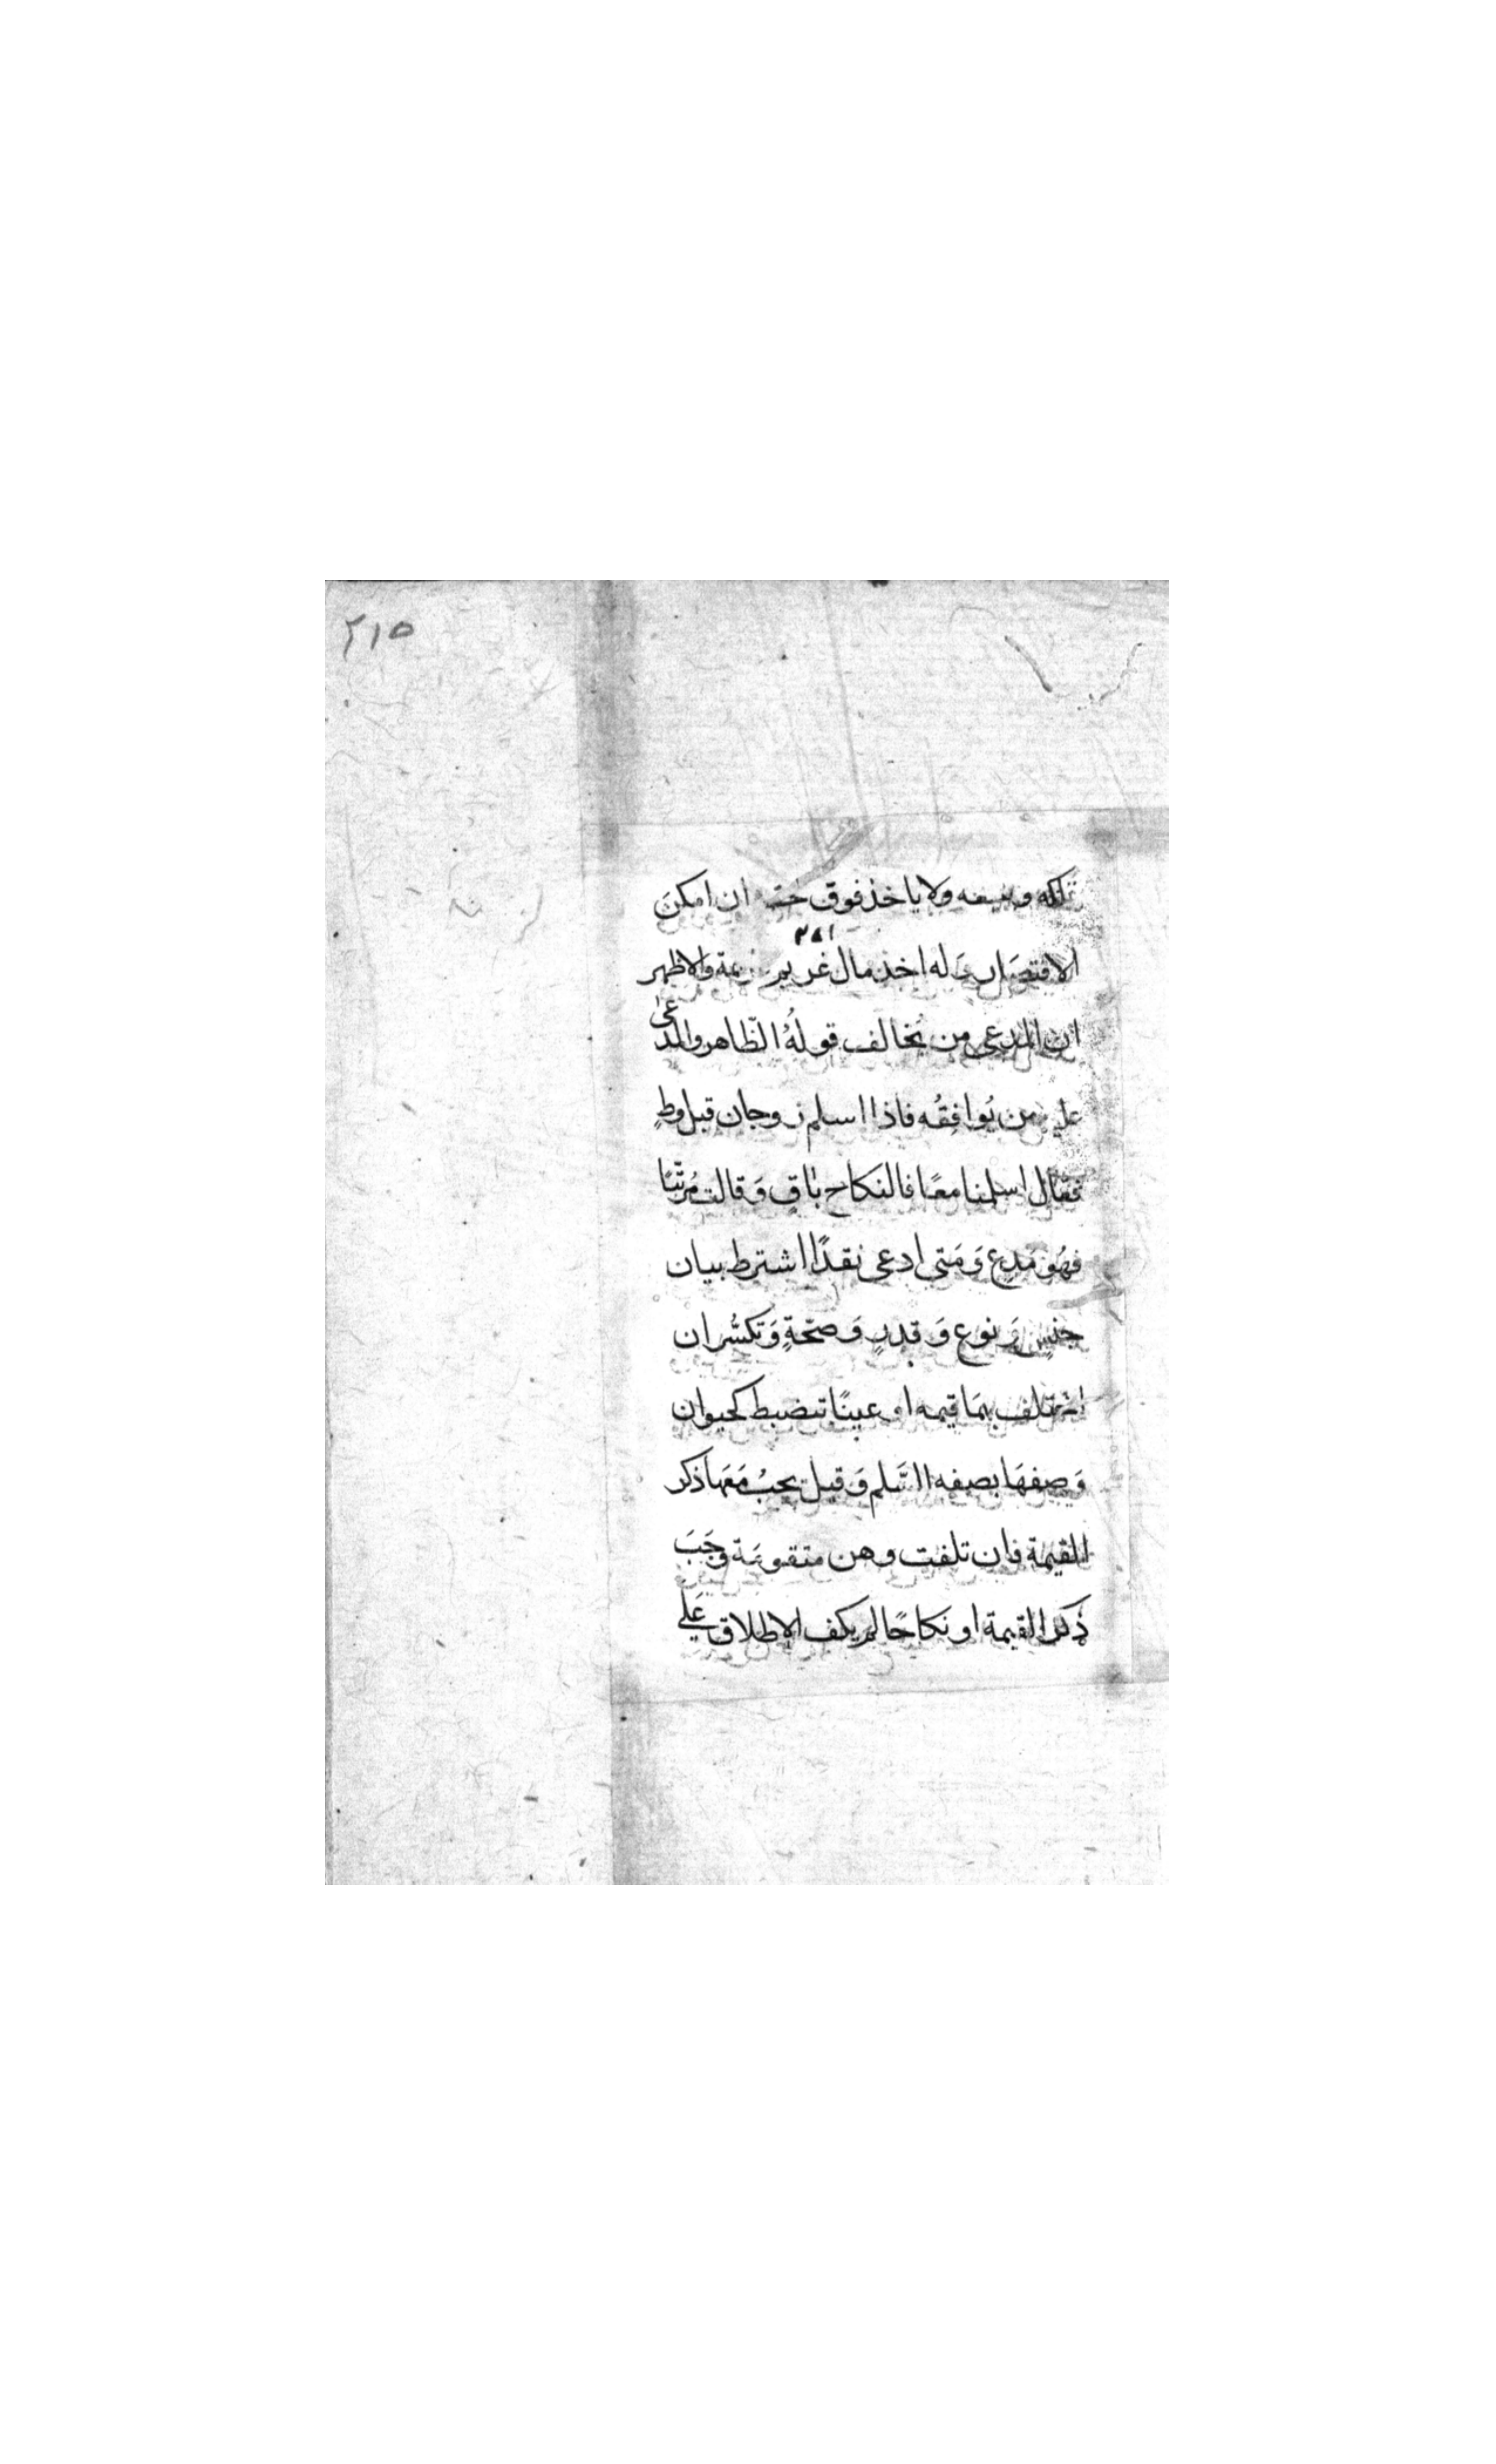 ٢١٥
ولا ياخذ فوق ان امكن
٢٨١
الاقتصار وله اخذ مال غريم والاظهر
ان المدعى من يخالف قولُهُ الظّاهر والمدعى
عليه من يُوافِقُه فاذا اسلم زوجان قبل وطٍ
فقال اسلمنا معًا فالنكاح باقٍ وَقالت مُرتّبًا
فهُو مَدعٍ وَمَتى ادعى نقدًا اشترط بيان
جنسٍ وَنوعٍ وَقدرٍ وَصحّةٍ وَتكسُّرٍ ان
اختلف بهمَا قيمه او عينًا تنضبط كحيوان
وَصفهَا بصفه السَّلم وَقيل يجبُ مَعَها ذكر
القيمة فان تلفت وهى متقومَة وجَبَ
ذكر القيمة او نكاحًا لم يكف الاطلاق عَلى